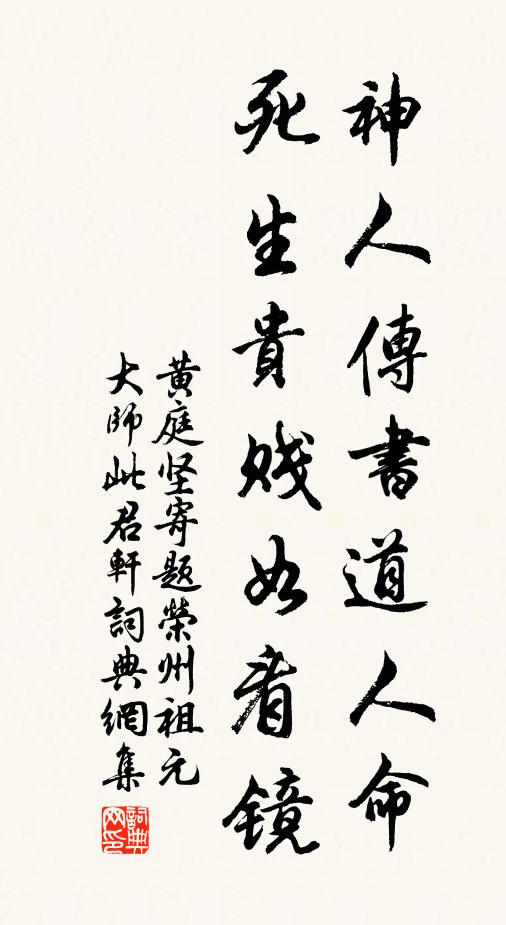 神人傳書道人命
死生貴贱如看镜
黄庭坚寄题榮州祖元
大師此君軒詞典網集
詞典网印